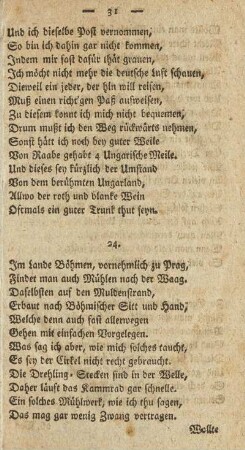 — 31 —
Und ich dieselbe Post vernommen,
So bin ich dahin gar nicht kommen,
Indem mir fast dafür thät grauen,
Ich möcht nicht mehr die deutsche Luft schauen,
Dieweil ein jeder, der hin will reisen,
Muß einen richt'gen Paß aufweisen,
Zu diesem konnt ich mich nicht bequemen,
Drum mußt ich den Weg rückwärts nehmen,
Sonst hätt ich noch bey guter Weile
Von Raabe gehabt 4 Ungarische Meile.
Und dieses sey kürzlich der Umstand
Von dem berühmten Ungarland,
Allwo der roth und blanke Wein
Oftmals ein guter Trunk thut seyn.
24.
Im Lande Böhmen, vornehmlich zu Prag,
Findet man auch Mühlen nach der Waag.
Daselbsten auf den Muldenstrand,
Erbaut nach Böhmischer Sitt und Hand,
Welche denn auch fast allerwegen
Gehen mit einfachen Vorgelegen.
Was sag ich aber, wie mich solches taucht,
Es sey der Cirkel nicht recht gebraucht.
Die Drehling-Stecken sind in der Welle,
Daher läuft das Kammrad gar schnelle.
Ein solches Mühlwerk, wie ich thu sagen,
Das mag gar wenig Zwang vertragen.
Wollte